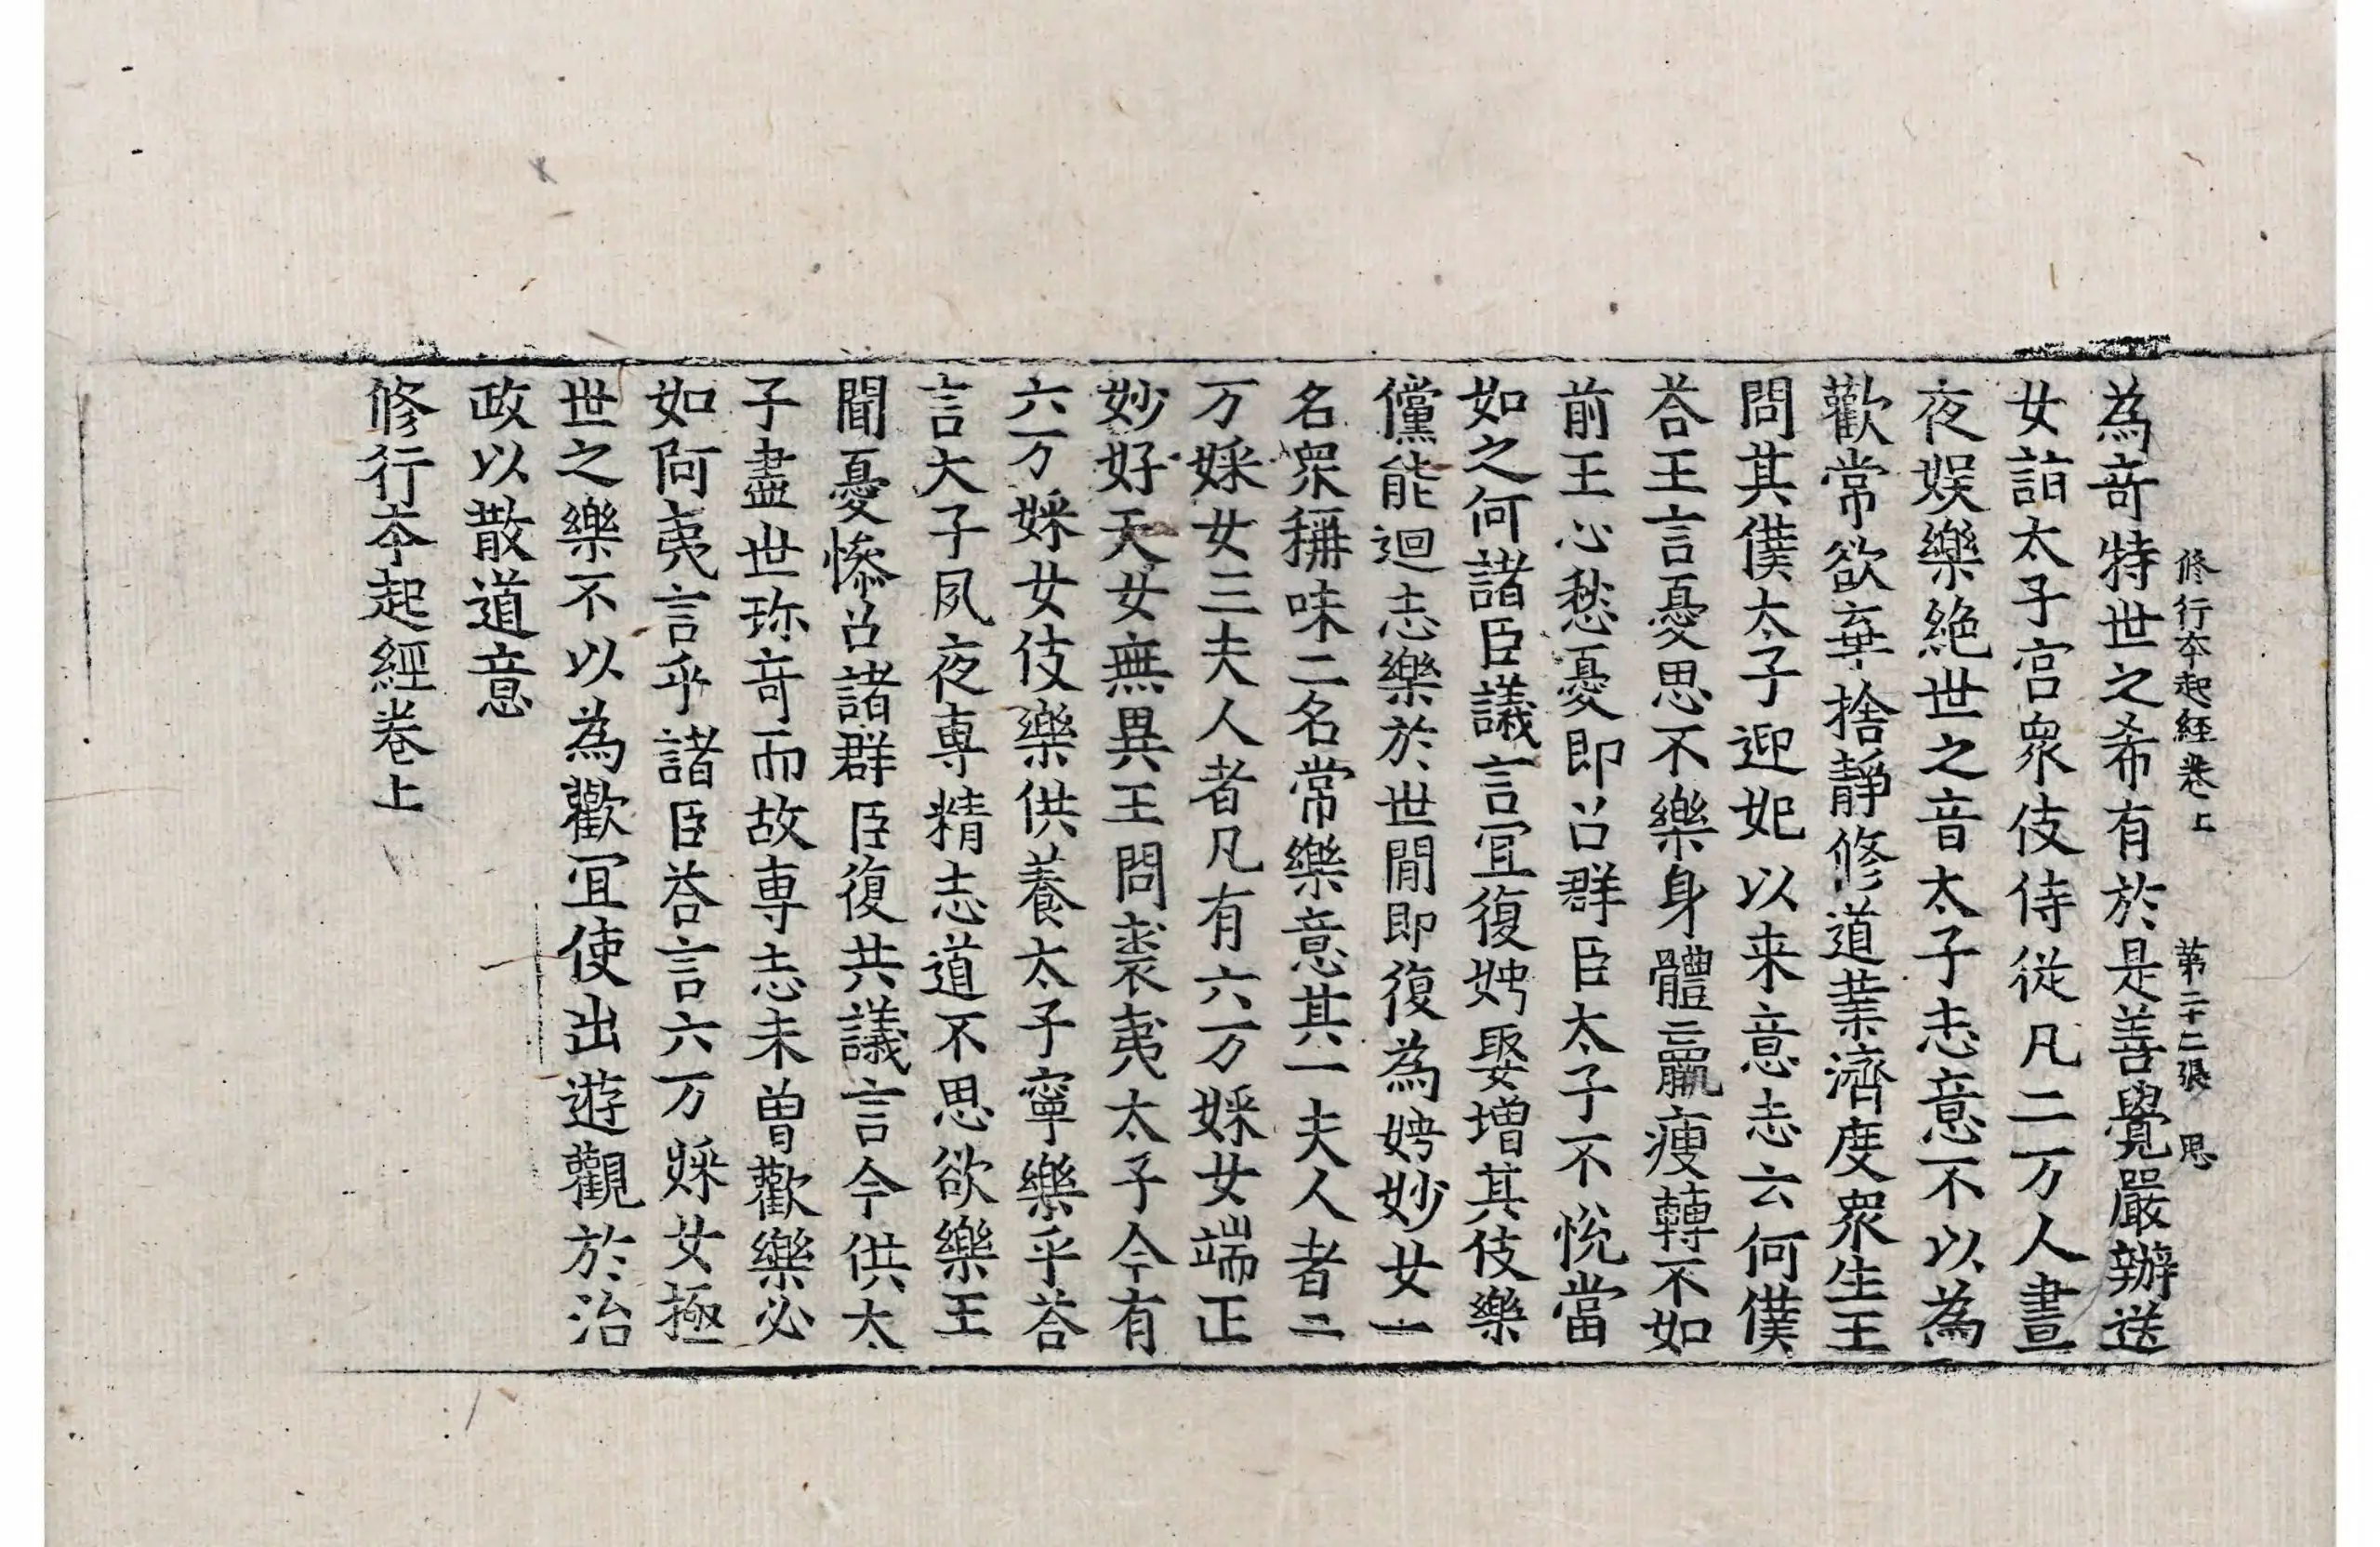 修行夲起經卷上 第二十二張 思
為竒特世之希有於是善覺嚴辦送
女詣太子宫衆伎侍從凡二万人晝
夜娱樂絶世之音太子志意不以為
歡常欲棄捨靜修道業濟度衆生王
問其僕太子迎妃以来意志云何僕
荅王言憂思不樂身體羸瘦轉不如
前王心愁憂即召群臣太子不悅當
如之何諸臣議言冝復娉娶增其伎樂
儻能迴志樂於世閒即復為娉妙女一
名衆稱味二名常樂意其一夫人者二
万婇女三夫人者凡有六万婇女端正
妙好天女無異王問裘夷太子今有
六万婇女伎樂供養太子寧樂乎荅
言太子夙夜專精志道不思欲樂王
聞憂慘召諸群臣復共議言今供太
子盡世珎竒而故專志未曾歡樂必
如阿夷言乎諸臣荅言六万婇女極
世之樂不以為歡冝使出遊觀於治
政以散道意
修行夲起經卷上